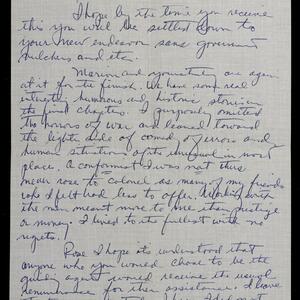 I hope by the time you receive
this you will be settled down to
your new endeavor sans government
and etc.
Marion and yours truly are again
at it for the finish. We have some real
humorous and historic stories in
the final chapters. I purposely omitted
the horrors of war and leaned toward
the lighter side of comedy of errors and
human situations of its unusual in most
places. A conformist I was not thus
never rose to colonel as many of my friends
who I felt had less to offer. Working with
the men meant more to me than prestige
or money. I lived to its fullest with no
regrets.
Rose I hope its understood that
anyone who you would chose to be the
guiding agent would receive the usual
remunerance for their assistance. I leave